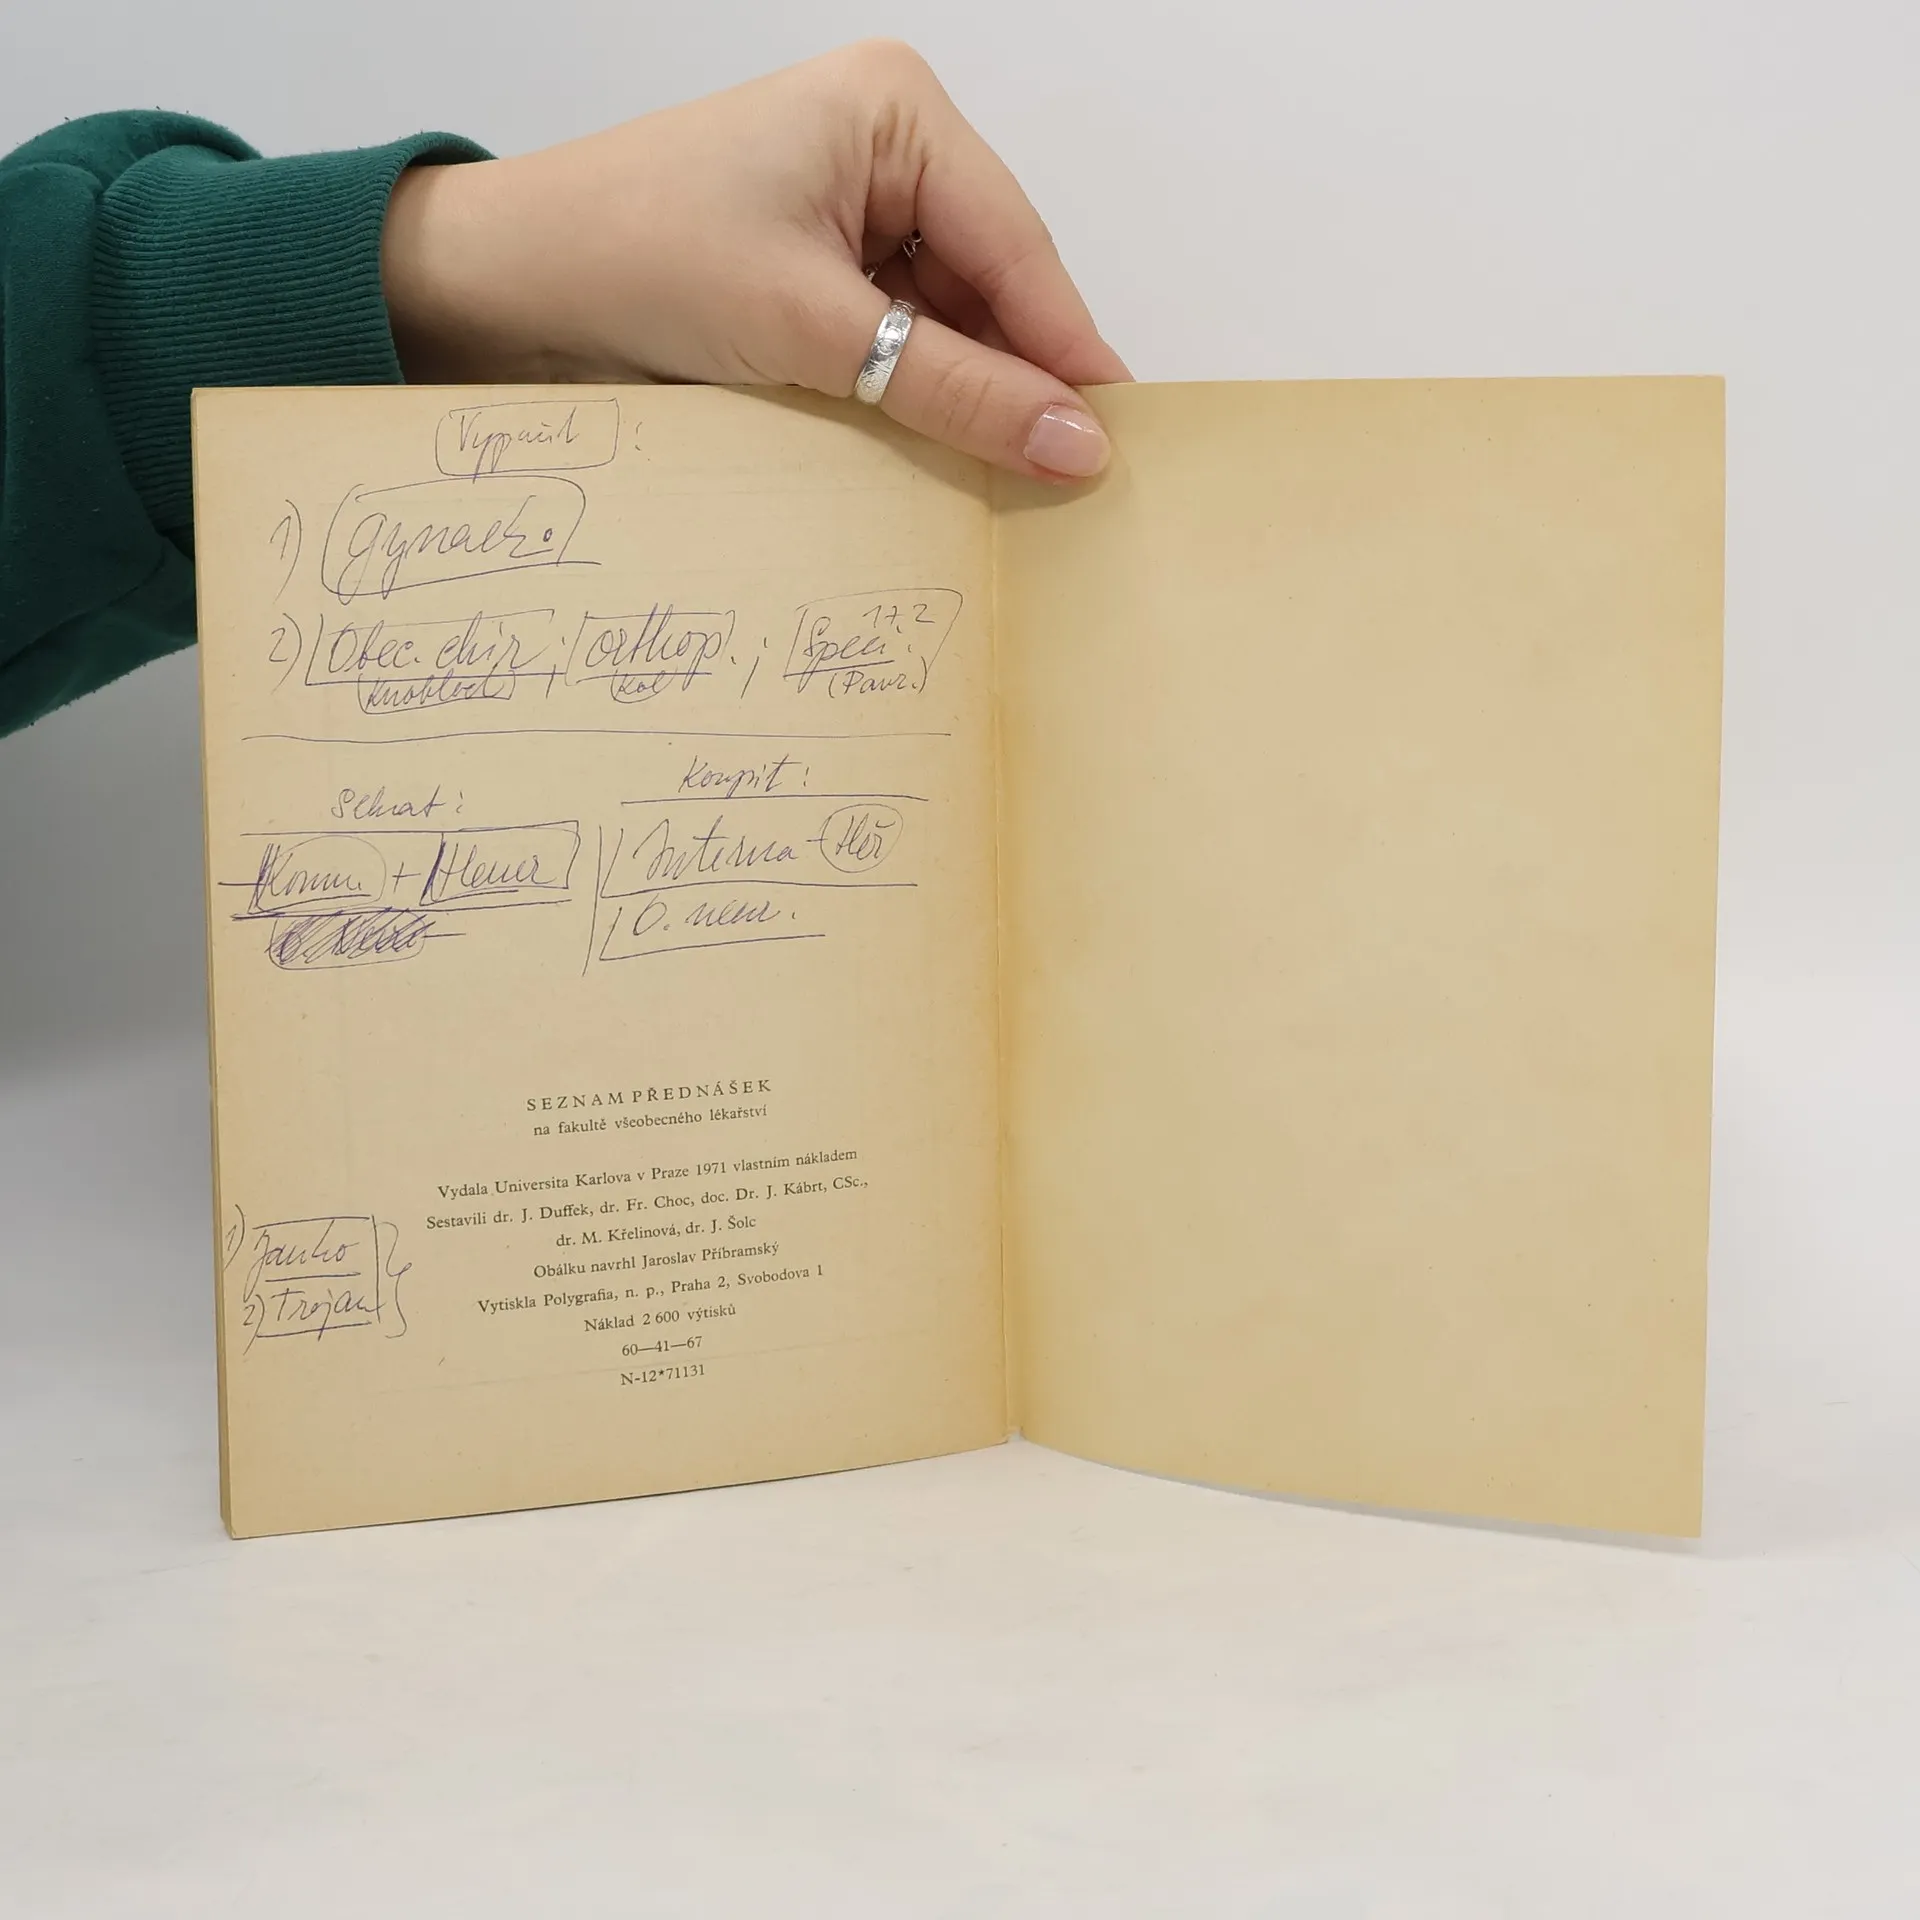 1) gynaek.
2) Obec. chir ; orthop. ; Speci. 1+2
(Knobloch) (Kol) (Pavr.)
Sehnat :
Koupit :
+
Interna -
O. neur.
SEZNAM PŘEDNÁŠEK
na fakultě všeobecného lékařství
Vydala Universita Karlova v Praze 1971 vlastním nákladem
Sestavili dr. J. Duffek, dr. Fr. Choc, doc. Dr. J. Kábrt, CSc.,
dr. M. Křelinová, dr. J. Šolc
Obálku navrhl Jaroslav Příbramský
Vytiskla Polygrafia, n. p., Praha 2, Svobodova 1
Náklad 2 600 výtisků
60—41—67
N-12*71131
1) Janko
2) Trojan